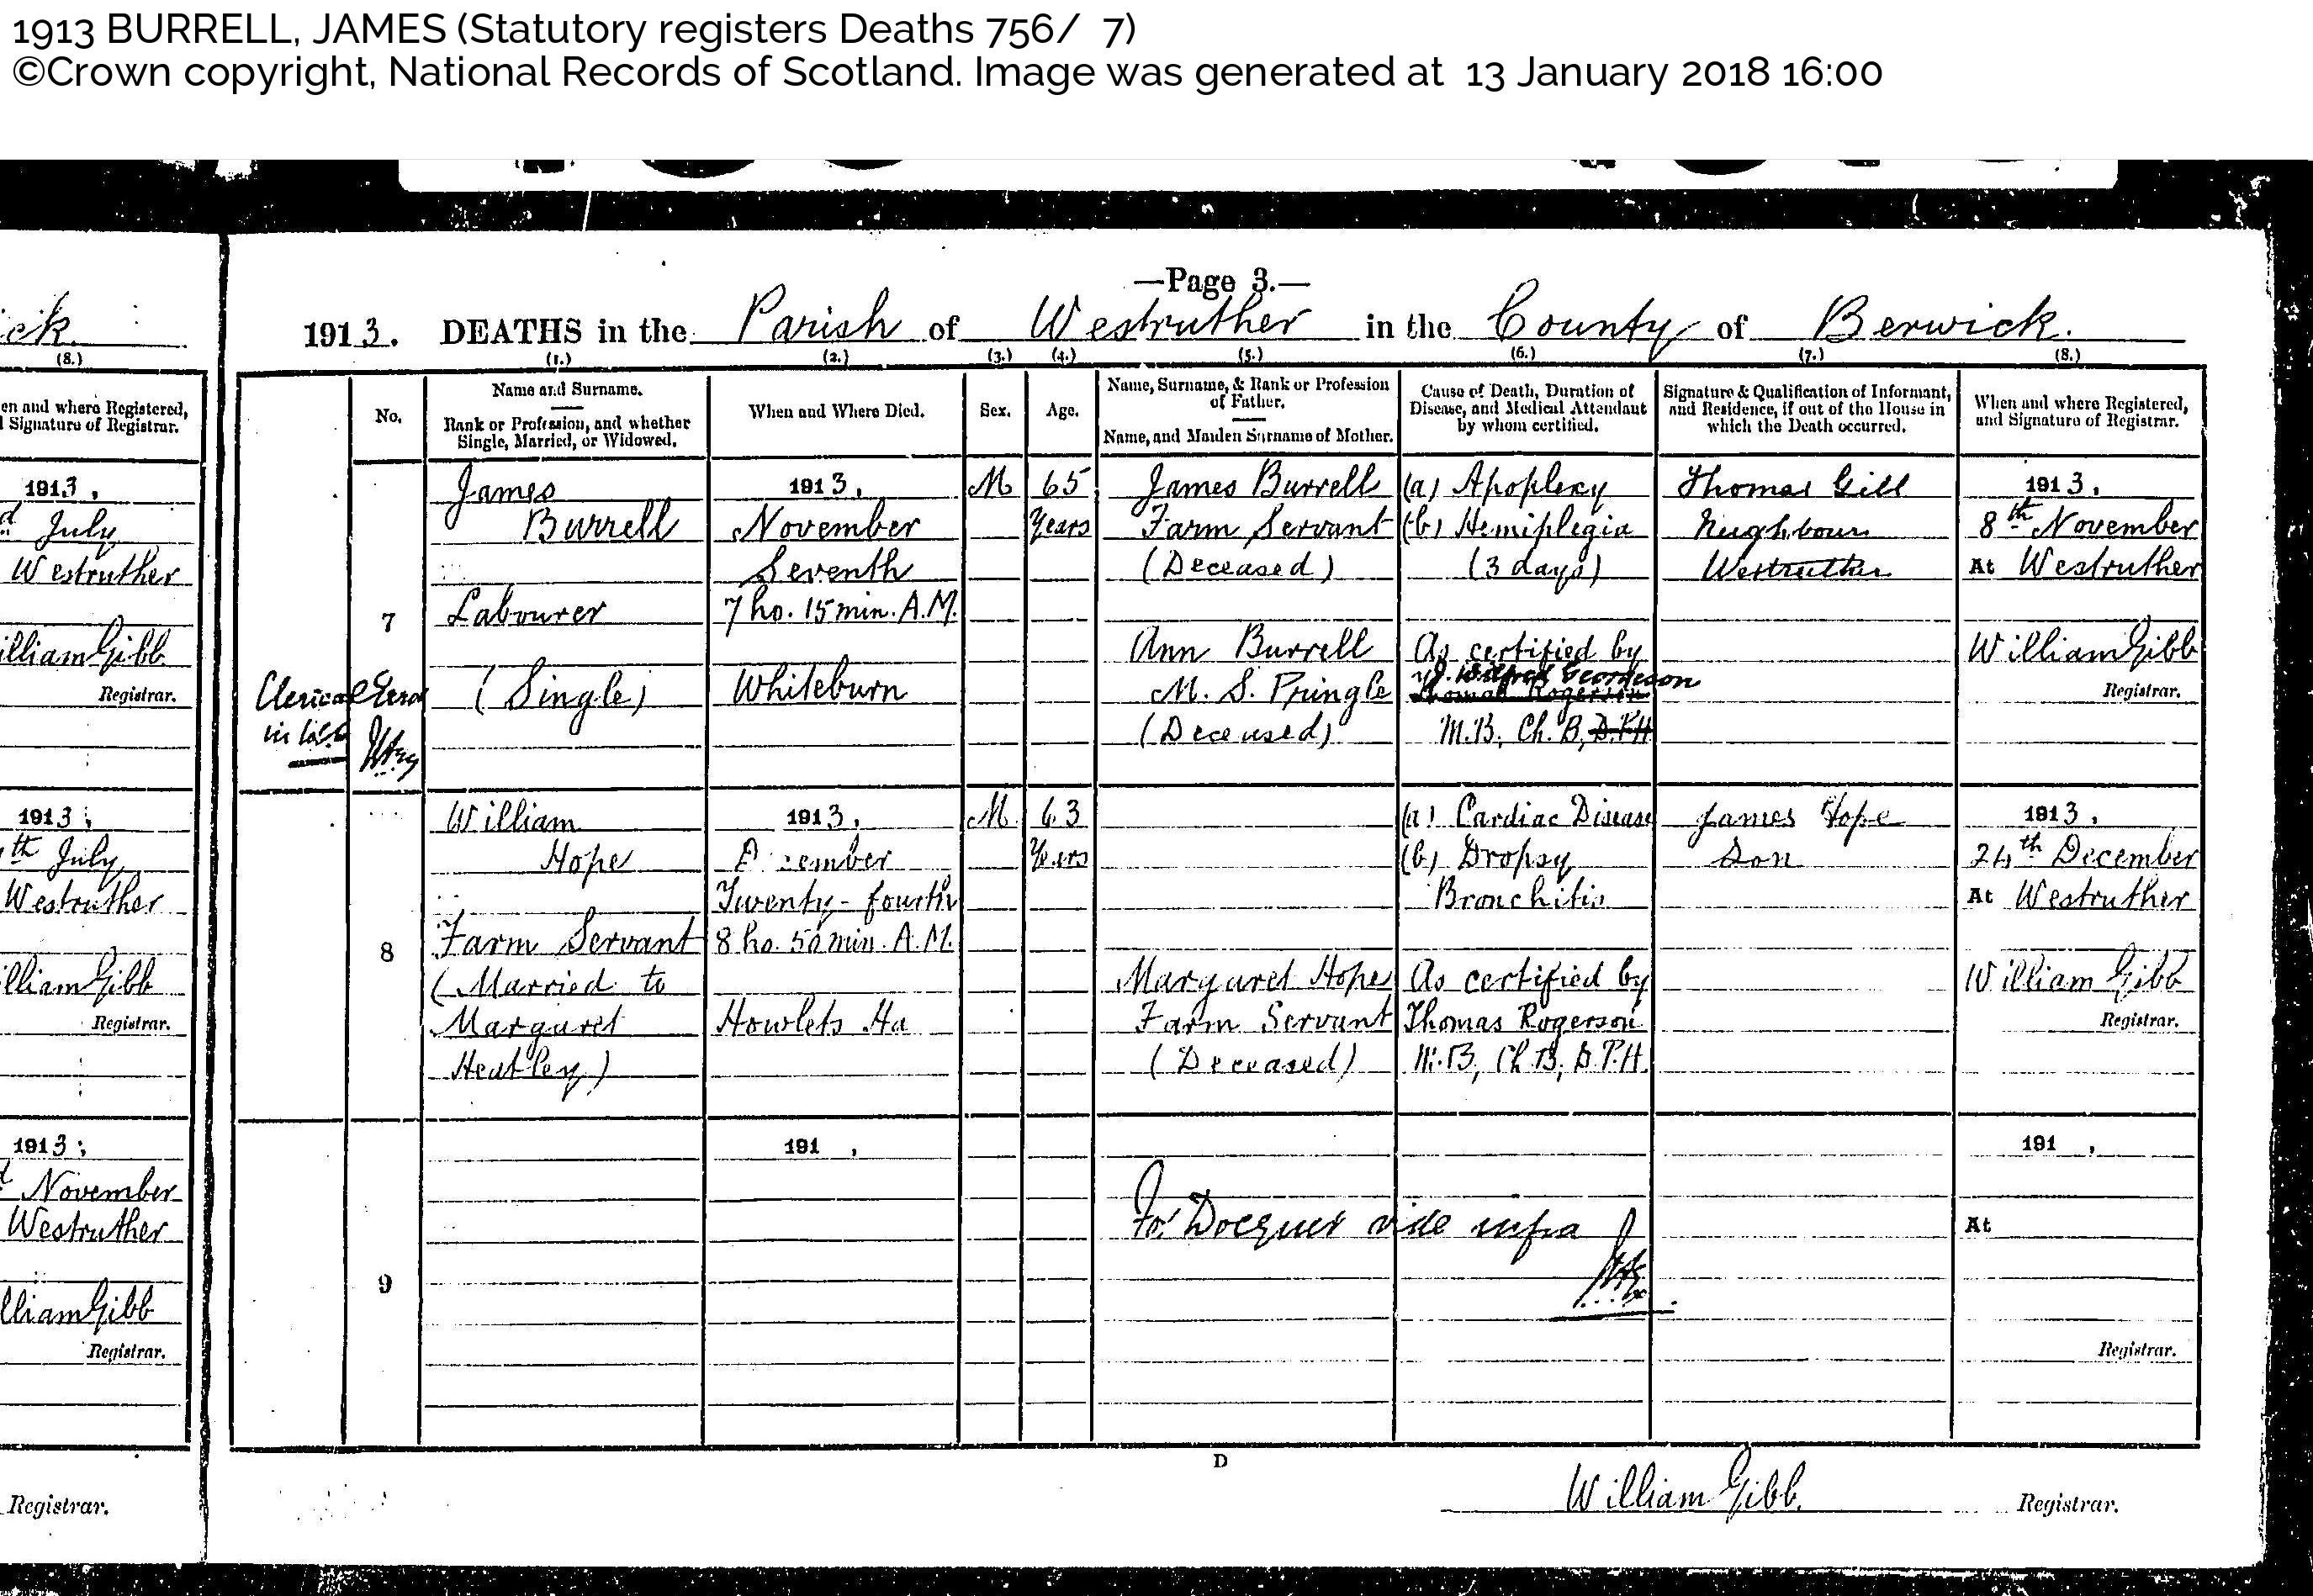 1913 BURRELL, JAMES (Statutory registers Deaths 756/ 7)
©Crown copyright, National Records of Scotland. Image was generated at 13 January 2018 16:00
—Page 3.—
1913. DEATHS in the Parish of Westruther in the County of Berwick.
(1.) (2.) (3.) (4.) (5.) (6.) (7.) (8.)
No.
Name and Surname.
Rank or Profession, and whether
Single, Married, or Widowed.
When and Where Died.
Sex.
Age.
Name, Surname, & Rank or Profession
of Father.
Name, and Maiden Surname of Mother.
Cause of Death, Duration of
Disease, and Medical Attendant
by whom certified.
Signature & Qualification of Informant,
and Residence, if out of the House in
which the Death occurred.
When and where Registered,
and Signature of Registrar.
Clerical Error
in
7
James
Burrell
Labourer
(Single)
1913,
November
Seventh
7 ho. 15 min. A.M.
Whiteburn
M
65
Years
James Burrell
Farm Servant
(Deceased)
Ann Burrell
M. S. Pringle
(Deceased)
(a) Apoplexy
(b) Hemiplegia
(3 days)
As certified by
Thomas Rogerson
M.B, Ch. B, D.P.H
Thomas Gill
Neighbour
Westruther
1913,
8th November
At Westruther
William Gibb
Registrar.
8
William
Hope
Farm Servant
(Married to
Margaret
Heatley)
1913,
December
Twenty-fourth
8 ho. 50 min. A.M.
Howlets Ha
M
63
Years
Margaret Hope
Farm Servant
(Deceased)
(a) Cardiac Disease
(b) Dropsy
Bronchitis
As certified by
Thomas Rogerson
M.B, Ch. B, D.P.H.
James Hope
Son
1913,
24th December
At Westruther
William Gibb
Registrar.
9
191 ,
For Docquet vide infra
191 ,
At
Registrar.
D
William Gibb. Registrar.
ick.
(8.)
en and where Registered,
d Signature of Registrar.
1913,
d July
Westruther
illiam Gibb
Registrar.
1913,
th July
Westruther
illiam Gibb
Registrar.
1913,
d November
Westruther
lliam Gibb
Registrar.
Registrar.